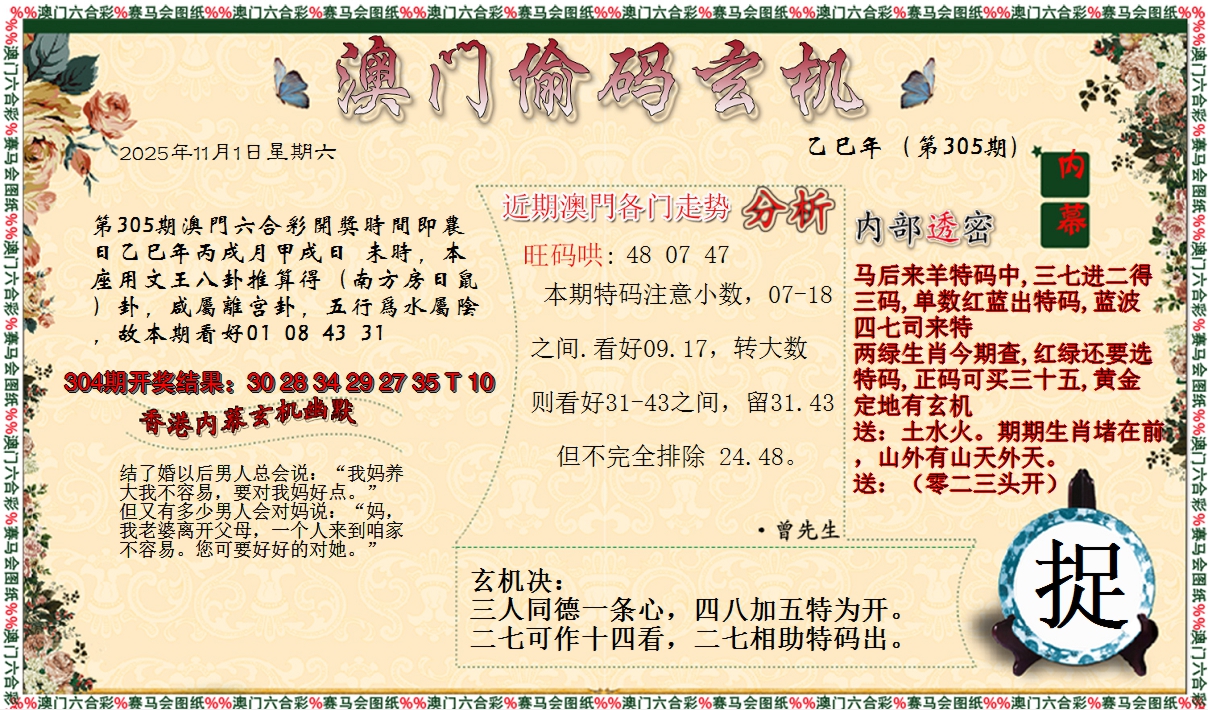 %%澳门六合彩%赛马会图纸%%澳门六合彩%赛马会图纸%%澳门六合彩%赛马会图纸%%澳门六合彩%赛马会图纸%%澳门六合彩%赛马会图纸%%澳门六合彩%赛马会图纸%%
澳门偷码玄机
2025年11月1日星期六
乙巳年（第305期）
内幕
第305期澳門六合彩開獎時間即農
日乙巳年丙戌月甲戌日 未時，本
座用文王八卦推算得（南方房日鼠
）卦，咸屬離宫卦，五行爲水屬陰
，故本期看好01 08 43 31
304期开奖结果：30 28 34 29 27 35 T 10
香港内幕玄机幽默
结了婚以后男人总会说：“我妈养
大我不容易，要对我妈好点。”
但又有多少男人会对妈说：“妈，
我老婆离开父母，一个人来到咱家
不容易。您可要好好的对她。”
近期澳門各门走势 分析
旺码哄: 48 07 47
本期特码注意小数，07-18
之间.看好09.17，转大数
则看好31-43之间，留31.43
但不完全排除 24.48。
·曾先生
内部透密
马后来羊特码中,三七进二得
三码,单数红蓝出特码,蓝波
四七司来特
两绿生肖今期查,红绿还要选
特码,正码可买三十五,黄金
定地有玄机
送：土水火。期期生肖堵在前
，山外有山天外天。
送：（零二三头开）
玄机决：
三人同德一条心，四八加五特为开。
二七可作十四看，二七相助特码出。
捉
%%澳门六合彩%赛马会图纸%%澳门六合彩%赛马会图纸%%澳门六合彩%赛马会图纸%%澳门六合彩%赛马会图纸%%澳门六合彩%赛马会图纸%%澳门六合彩%赛马会图纸%%